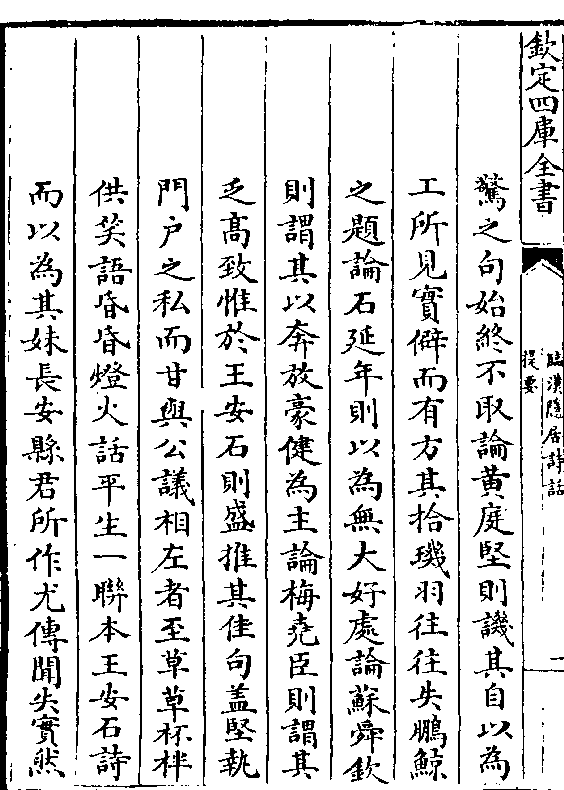 欽定四庫全書
臨漢隱居詩話
提要
二
驚之句始終不取論黄庭堅則譏其自以為
工所見實僻而有方其拾璣羽往往失鵬鯨
之題論石延年則以為無大好處論蘇舜欽
則謂其以奔放豪健為主論梅堯臣則謂其
乏高致惟於王安石則盛推其佳句盖堅執
門户之私而甘與公議相左者至草草杯柈
供笑語昏昏燈火話平生一聯本王安石詩
而以為其妹長安縣君所作尤傳聞失實然